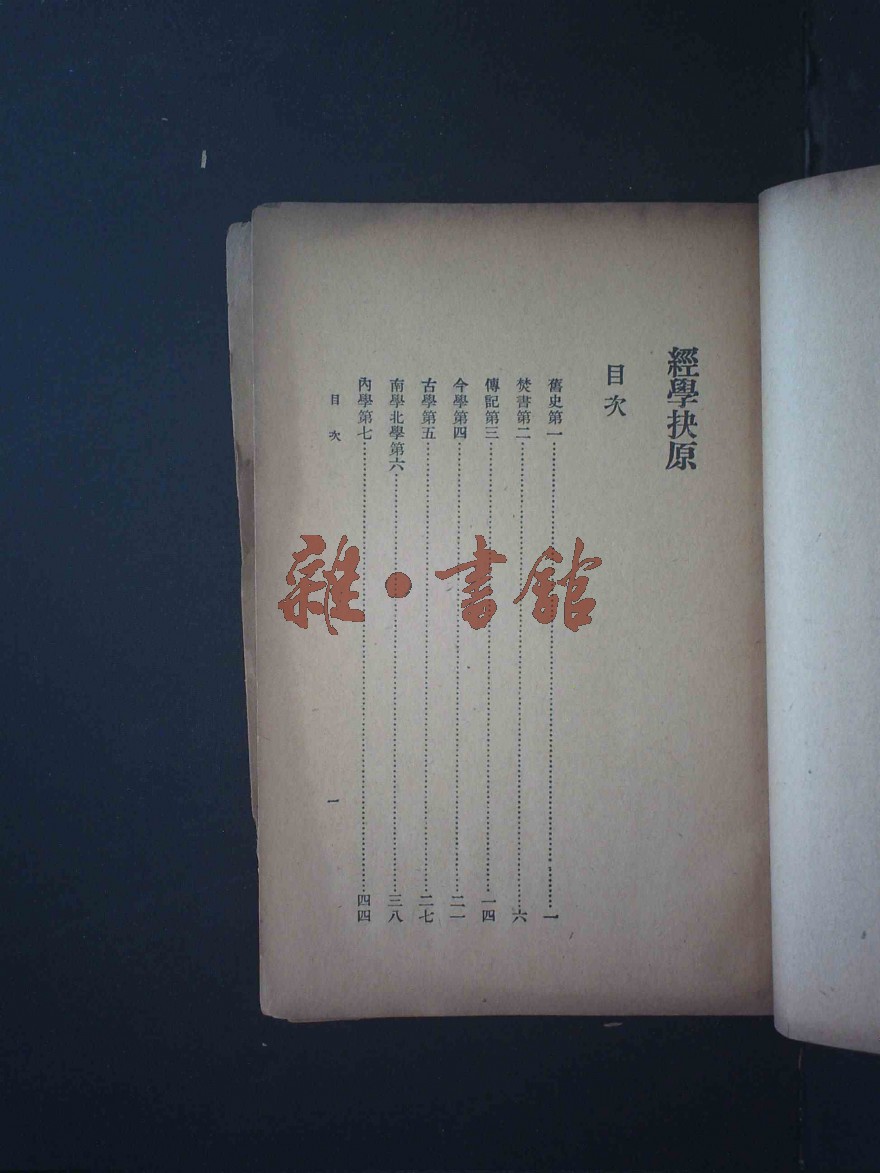 經學抉原
目次
舊史第一…………一
焚書第二…………六
傳記第三…………一四
今學第四…………二一
古學第五…………二七
南學北學第六…………三八
內學第七…………四四
目次
一
雜·書館